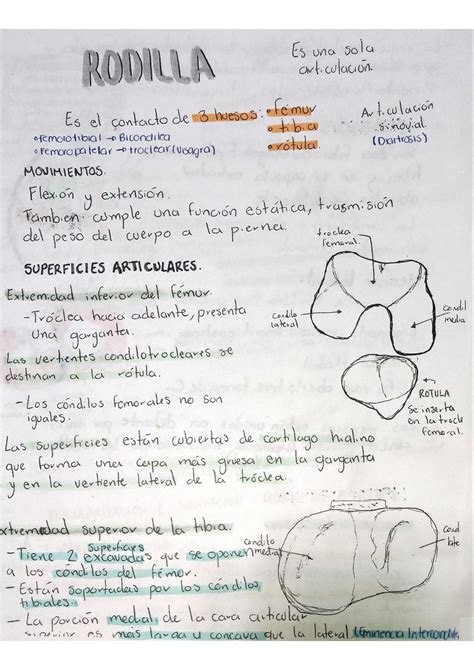 RODILLA
Es una sola
articulación.
Es el contacto de 3 huesos: •fémur
•tibia
•rótula.
Articulación
sinovial
(Diartrosis)
•Femorotibial → Bicondilea
•Femoropatelar → troclear (visagra)
MOVIMIENTOS.
Flexión y extensión.
También cumple una función estática, trasmisión
del peso del cuerpo a la pierna.
troclea
femoral.
SUPERFICIES ARTICULARES.
Extremidad inferior del fémur.
-Tróclea hacia adelante, presenta
una garganta.
Condilo
lateral
Condil
medial
Las vertientes condilotrocleares se
destinan a la rótula.
-Los cóndilos femorales no son
iguales.
ROTULA
Se inserta
en la trocle
femoral.
Las superficies están cubiertas de cartílago hialino
que forma una capa más gruesa en la garganta
y en la vertiente lateral de la tróclea.
xtremedad superior de la tibia.
-Tiene 2 superficies excavadas que se oponen
a los cóndilos del fémor.
Condilo
medial
Cond
late
-Están soportadas por los cóndilos
tibiales.
-La porción medial de la cara articular
superior es más larga y concava que la lateral.
Eminencia Intercondil